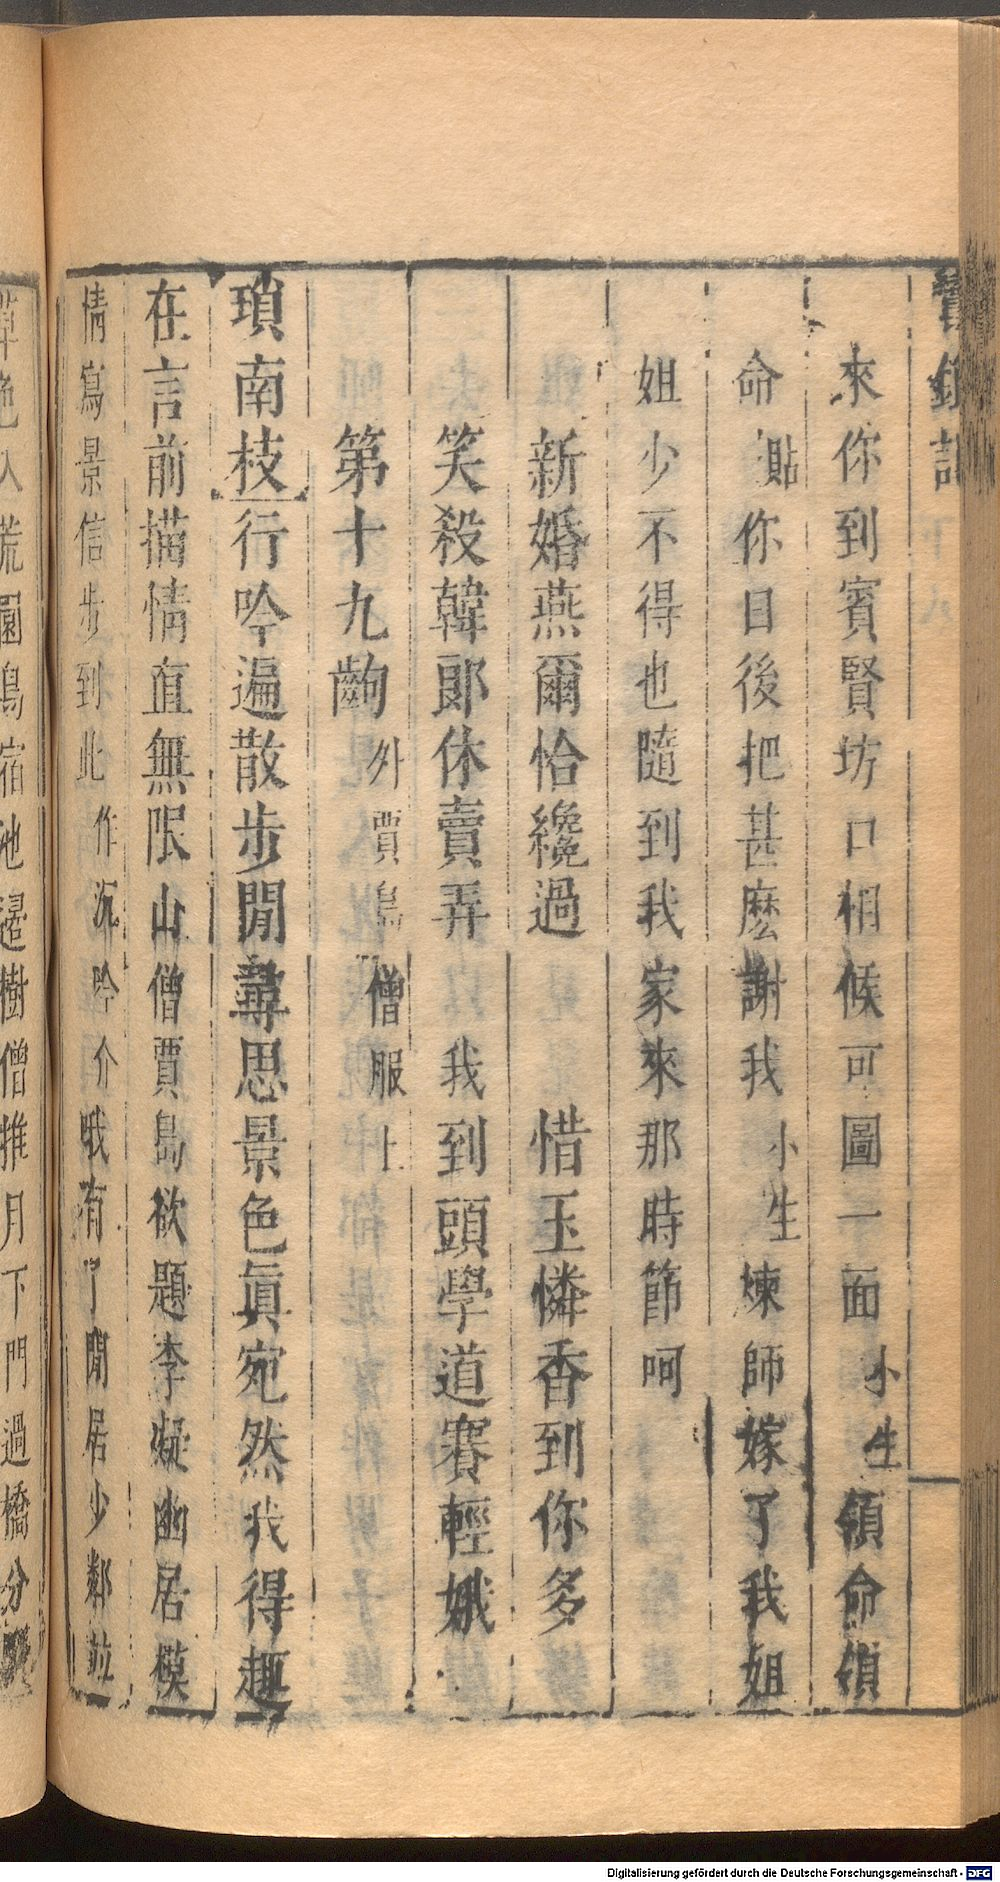 來你到賓賢坊口相候可圖一面小生領命領
命貼你日後把甚麽謝我小生煉師嫁了我姐
姐少不得也隨到我家來那時節呵
新婚燕爾恰纔過 惜玉憐香到你多
笑殺韓郎休賣弄 我到頭學道賽輕娥
第十九齣外賈島僧服上
瑣南枝行吟遍散步閒尋思景色眞宛然我得趣
在言前描情直無限山僧賈島欲題李凝幽居模
情寫景信步到此作沉吟介哦有了閒居少鄰並
草
入荒園鳥宿池邊樹僧推月下門過橋分
Digitalisierung gefördert durch die Deutsche Forschungsgemeinschaft - DFG